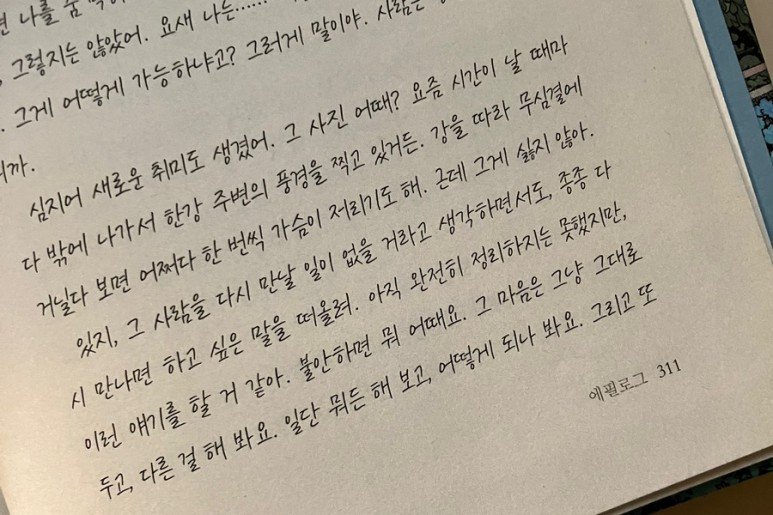 나를
그렇지는 않았어. 요새 나는……
그게 어떻게 가능하냐고? 그러게 말이야. 사람은
니까.
심지어 새로운 취미도 생겼어. 그 사진 어때? 요즘 시간이 날 때마
다 밖에 나가서 한강 주변의 풍경을 찍고 있거든. 강을 따라 무심결에
거닐다 보면 어쩌다 한 번씩 가슴이 저리기도 해. 근데 그게 싫지 않아.
있지, 그 사람을 다시 만날 일이 없을 거라고 생각하면서도, 종종 다
시 만나면 하고 싶은 말을 떠올려. 아직 완전히 정리하지는 못했지만,
이런 얘기를 할 거 같아. 불안하면 뭐 어때요. 그 마음은 그냥 그대로
두고, 다른 걸 해 봐요. 일단 뭐든 해 보고, 어떻게 되나 봐요. 그리고 또
에필로그 311